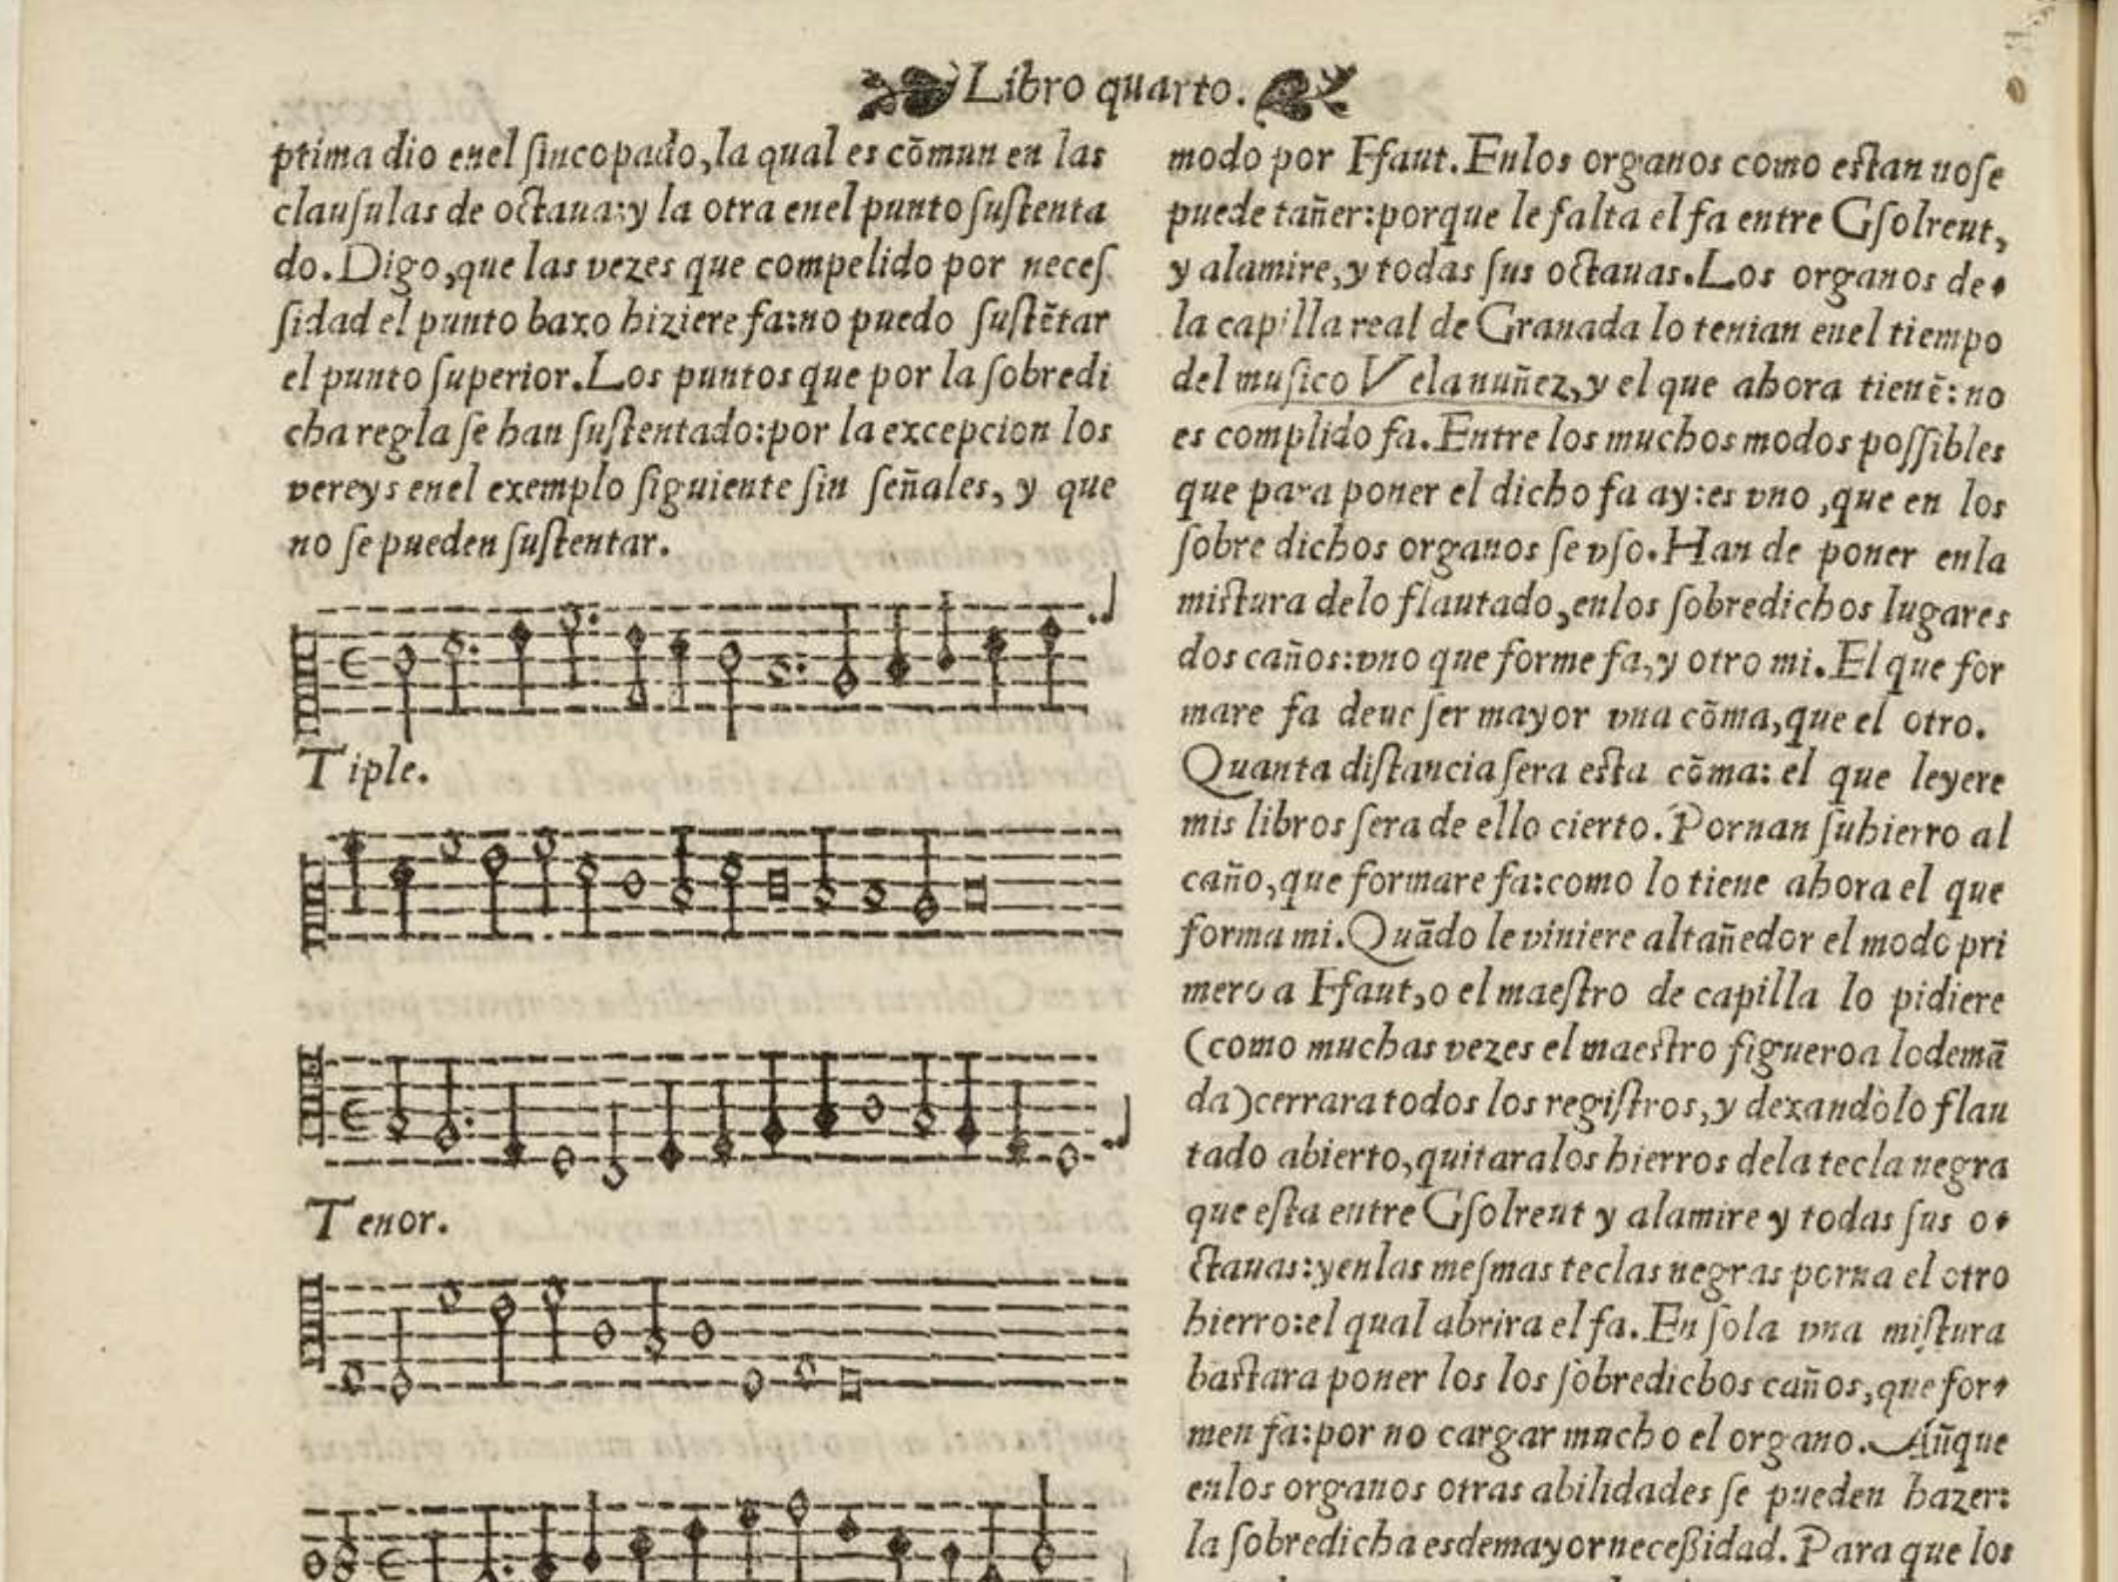 Libro quarto.
ptima dio enel ſincopado,la qual es cōmun en las
clauſulas de octaua:y la otra enel punto ſuſtenta
do.Digo,que las vezes que compelido por neceſ
ſidad el punto baxo hiziere fa:no puedo ſuſtētar
el punto ſuperior.Los puntos que por la ſobredi
cha regla ſe han ſuſtentado:por la excepcion los
vereys enel exemplo ſiguiente ſin ſeñales, y que
no ſe pueden ſuſtentar.
Tiple.
Tenor.
modo por Ffaut.Enlos organos como eſtan noſe
puede tañer:porque le falta el fa entre Gſolreut,
y alamire,y todas ſus octauas.Los organos de
la capilla real de Granada lo tenian enel tiempo
del muſico Velanuñez,y el que ahora tienē:no
es complido fa.Entre los muchos modos poſſibles
que para poner el dicho fa ay:es vno ,que en los
ſobre dichos organos ſe vſo.Han de poner enla
miſtura delo flautado,enlos ſobredichos lugares
dos caños:vno que forme fa,y otro mi.El que for
mare fa deue ſer mayor vna cōma,que el otro.
Quanta diſtancia ſera eſta cōma: el que leyere
mis libros ſera de ello cierto.Pornan ſuhierro al
caño,que formare fa:como lo tiene ahora el que
forma mi.Quādo le viniere altañedor el modo pri
mero a Ffaut,o el maeſtro de capilla lo pidiere
(como muchas vezes el maeſtro figueroa lodemā
da)cerrara todos los regiſtros,y dexandolo flau
tado abierto,quitaralos hierros dela tecla negra
que eſta entre Gſolreut y alamire y todas ſus o
ctauas:yenlas meſmas teclas negras porna el otro
hierro:el qual abrira el fa.En ſola vna miſtura
baſtara poner los los ſobredichos caños,que for
men fa:por no cargar mucho el organo.Aūque
enlos organos otras abilidades ſe pueden hazer:
la ſobredicha esdemayorneceßidad.Para que los